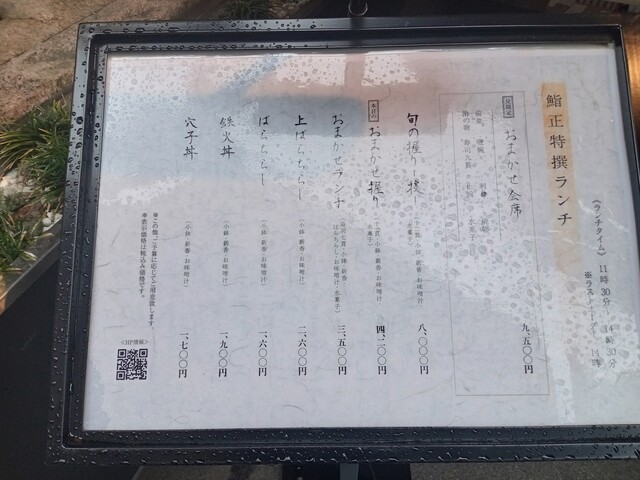 鮨正特撰ランチ
《ランチタイム》11時30分
14時30分
※ラストオーダー 14時
おまかせ会席
九、五〇〇円
旬の握り
八、〇〇〇円
本日の おまかせ握り
四、二〇〇円
おまかせランチ
三、五〇〇円
上ばらちらし
(小鉢・新香・お味噌汁)
二、六〇〇円
ばらちらし
(小鉢・新香・お味噌汁)
一、六〇〇円
鉄火丼
(小鉢・新香・お味噌汁)
一、九〇〇円
穴子丼
(小鉢・新香・お味噌汁)
一、七〇〇円
※この他、ご予算に応じてご用意致します。
※表示価格は税込み価格です。
<HP情報>